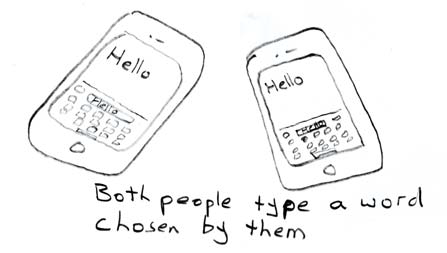 Hello
Hello
Hello
Hello
Both people type a word
chosen by them